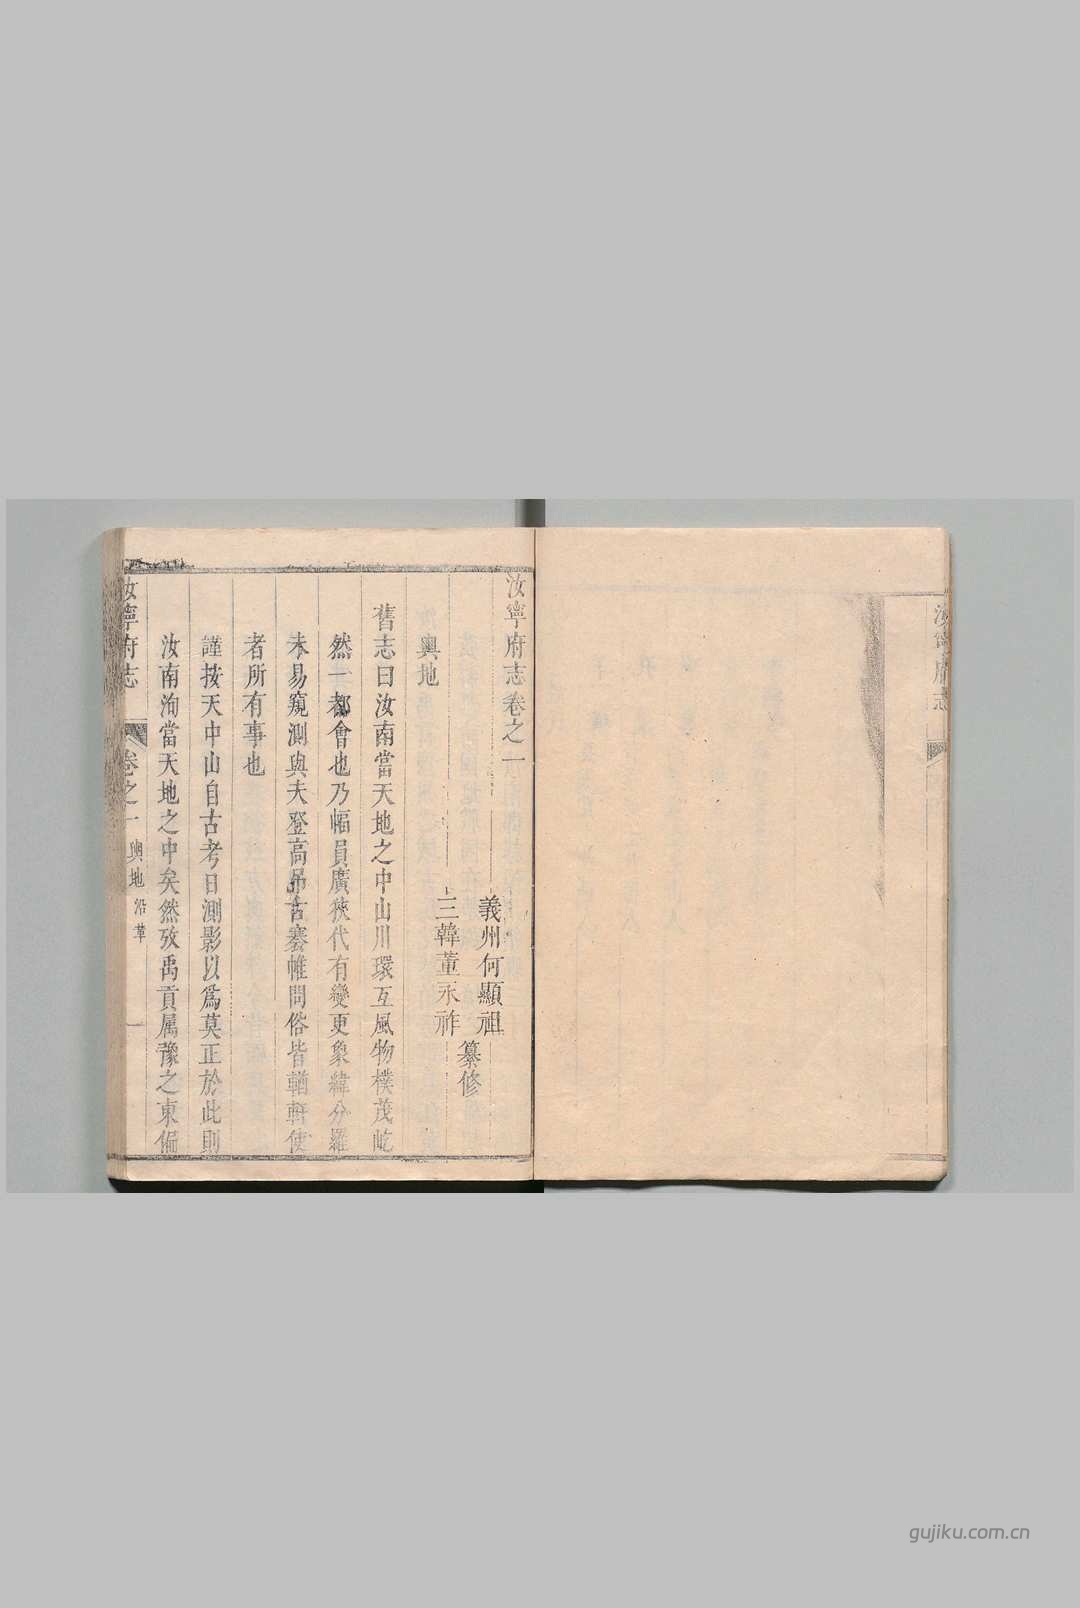 汝寧府志
汝寧府志卷之一
義州何顯祖
三韓董永祚
纂修
輿地
舊志曰汝南當天地之中山川環互風物樸茂屹
然一都會也乃幅員廣狹代有變更象緯分羅
未易窺測與夫登高吊古褰帷問俗皆輶軒使
者所有事也
謹按天中山自古考日測影以爲莫正於此則
汝南洵當天地之中矣然攷禹貢属豫之東偏
汝寧府志
卷之一
輿地
沿革
gujiku.com.cn